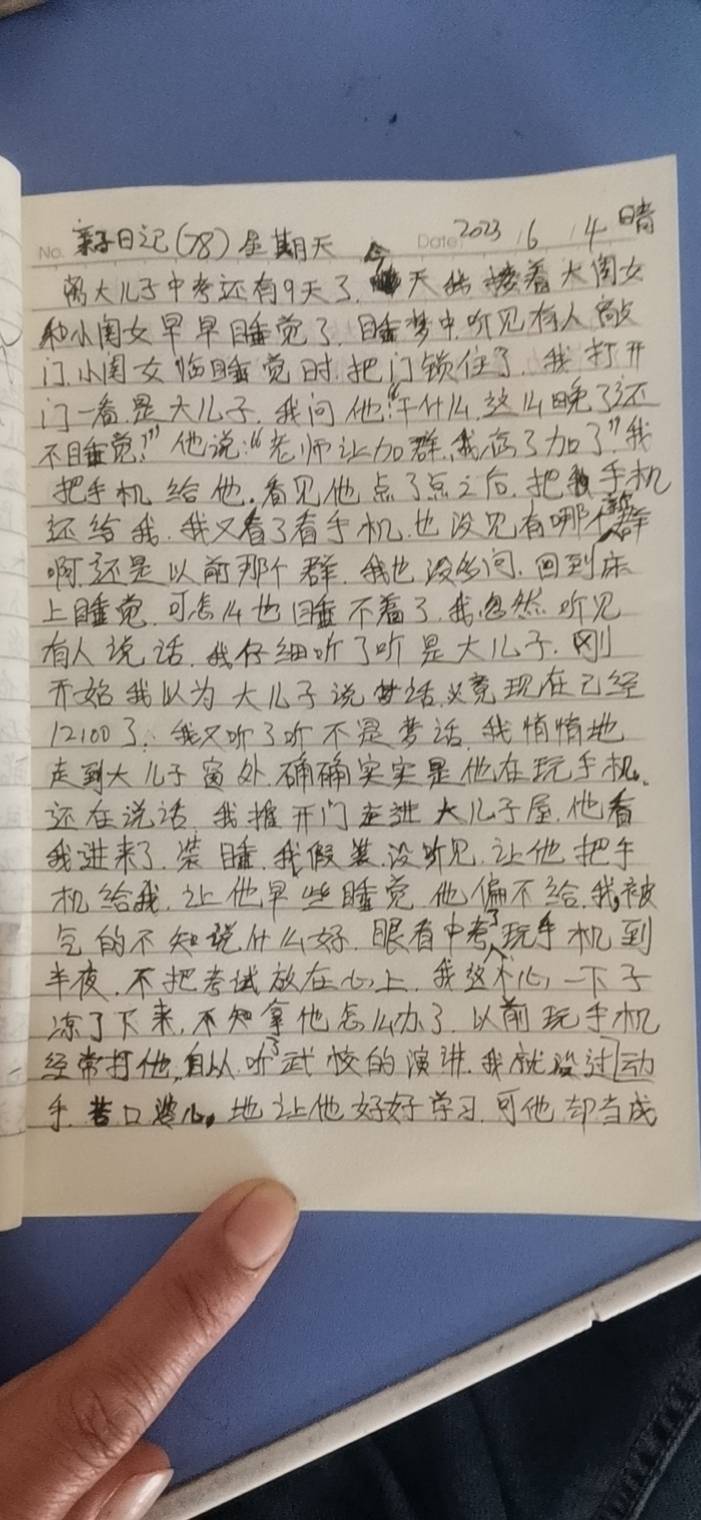 No. 亲子日记(78) 星期天 Date 2023 6 4 晴
离大儿子中考还有9天了.今天 搂着大闺女
和小闺女早早睡觉了.睡梦中,听见有人敲
门.小闺女临睡觉时.把门锁住了.我打开
门一看.是大儿子.我问他:“干什么.这么晚了还
不睡觉?”他说:“老师让加群.我忘了加了”我
把手机给他.看见他点了点之后.把手机
还给我.我又看了看手机.也没见有哪个新群
啊.还是以前那个群.我也没多问.回到床
上睡觉.可怎么也睡不着了.我忽然听见
有人说话.我仔细听了听是大儿子.刚
开始我以为大儿子说梦话.义竟现在已经
12100了.我又听了听不是梦话.我悄悄地
走到大儿子窗外.确确实实是他在玩手机.
还在说话.我推开门走进大儿子屋.他看
我进来了.装睡.我假装没听见.让他把手
机给我.让他早些睡觉 他偏不给.我被
气的不知说什么好.眼看中考了玩手机到
半夜.不把考试放在心上.我这个心,一下子
凉了下来,不知拿他怎么办了.以前玩手机
经常打他,自从听了武校的演讲.我就没过动
手.苦口婆心,地让他好好学习.可他却当成